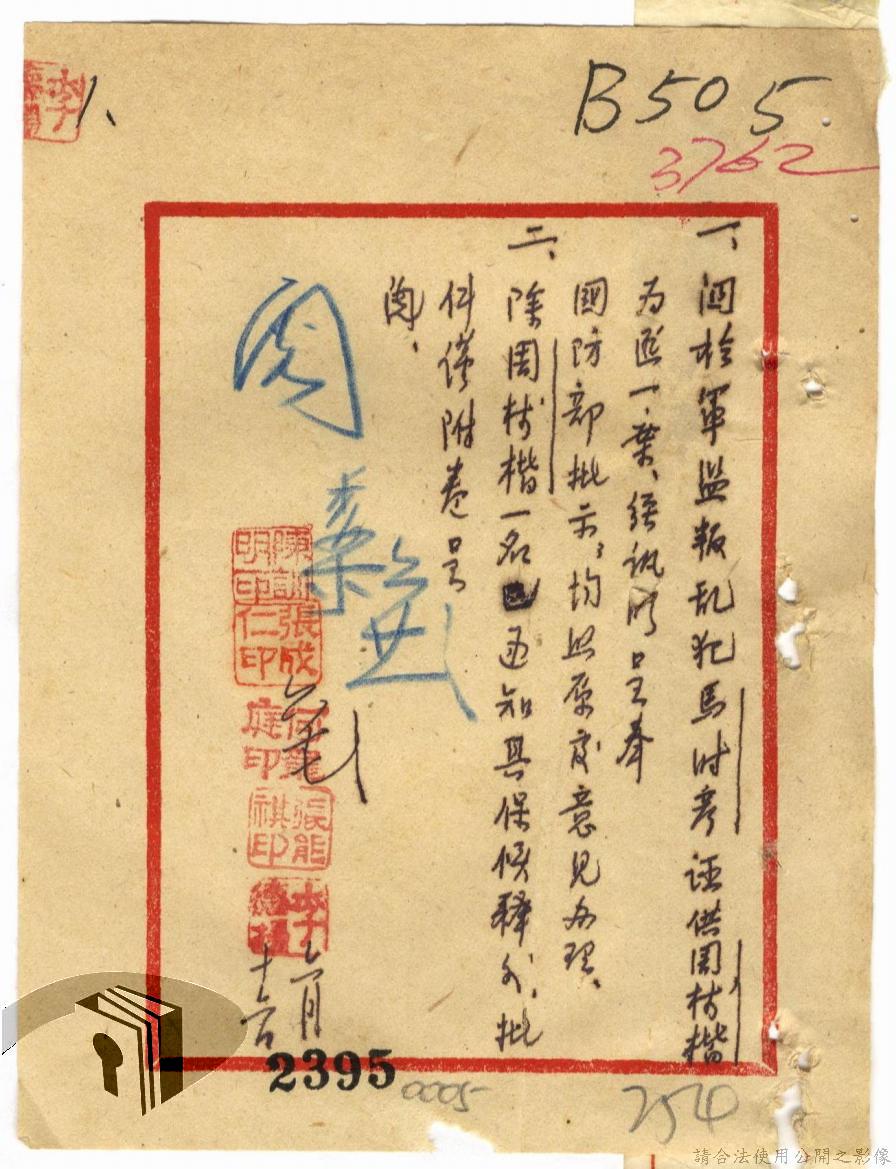 B505
3762
1、
一、關於軍監叛乱犯馬時彥誣供周材楷
為匪一案、經訊明呈奉
國防部批示、均照原擬意見辦理、
二、除周材楷一名通知具保候釋外、批
件僅附卷呈
閱、
閱
陳訓明印
張成仁印
張能祺印
六月
十六
2395
0005
254
請合法使用公開之影像